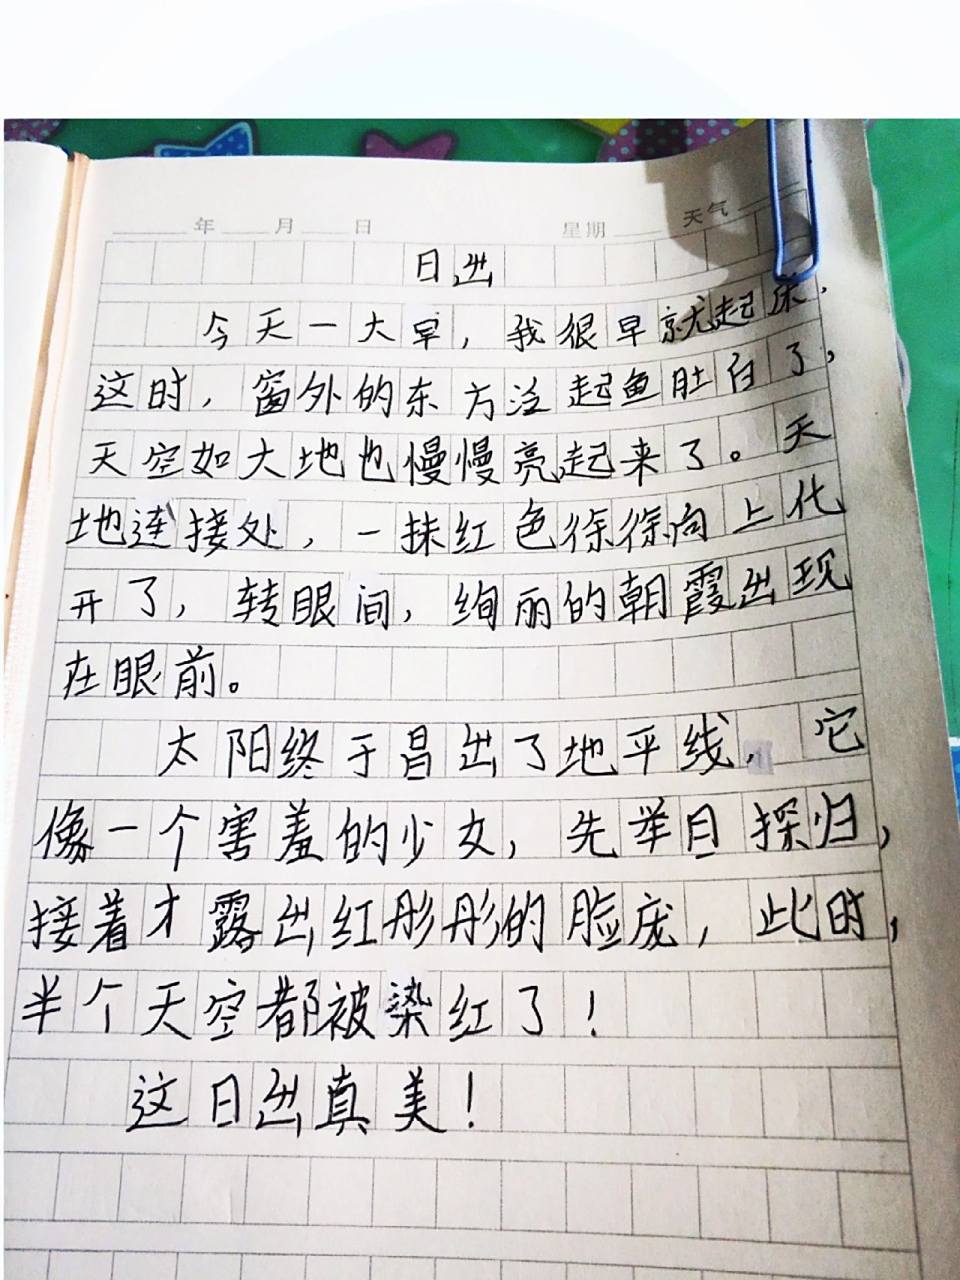 年 月 日 星期 天气
日出
今天一大早，我很早就起床，
这时，窗外的东方泛起鱼肚白了，
天空如大地也慢慢亮起来了。天
地连接处，一抹红色徐徐向上化
开了，转眼间，绚丽的朝霞出现
在眼前。
太阳终于冒出了地平线，它
像一个害羞的少女，先举目探归，
接着才露出红彤彤的脸庞，此时，
半个天空都被染红了！
这日出真美！